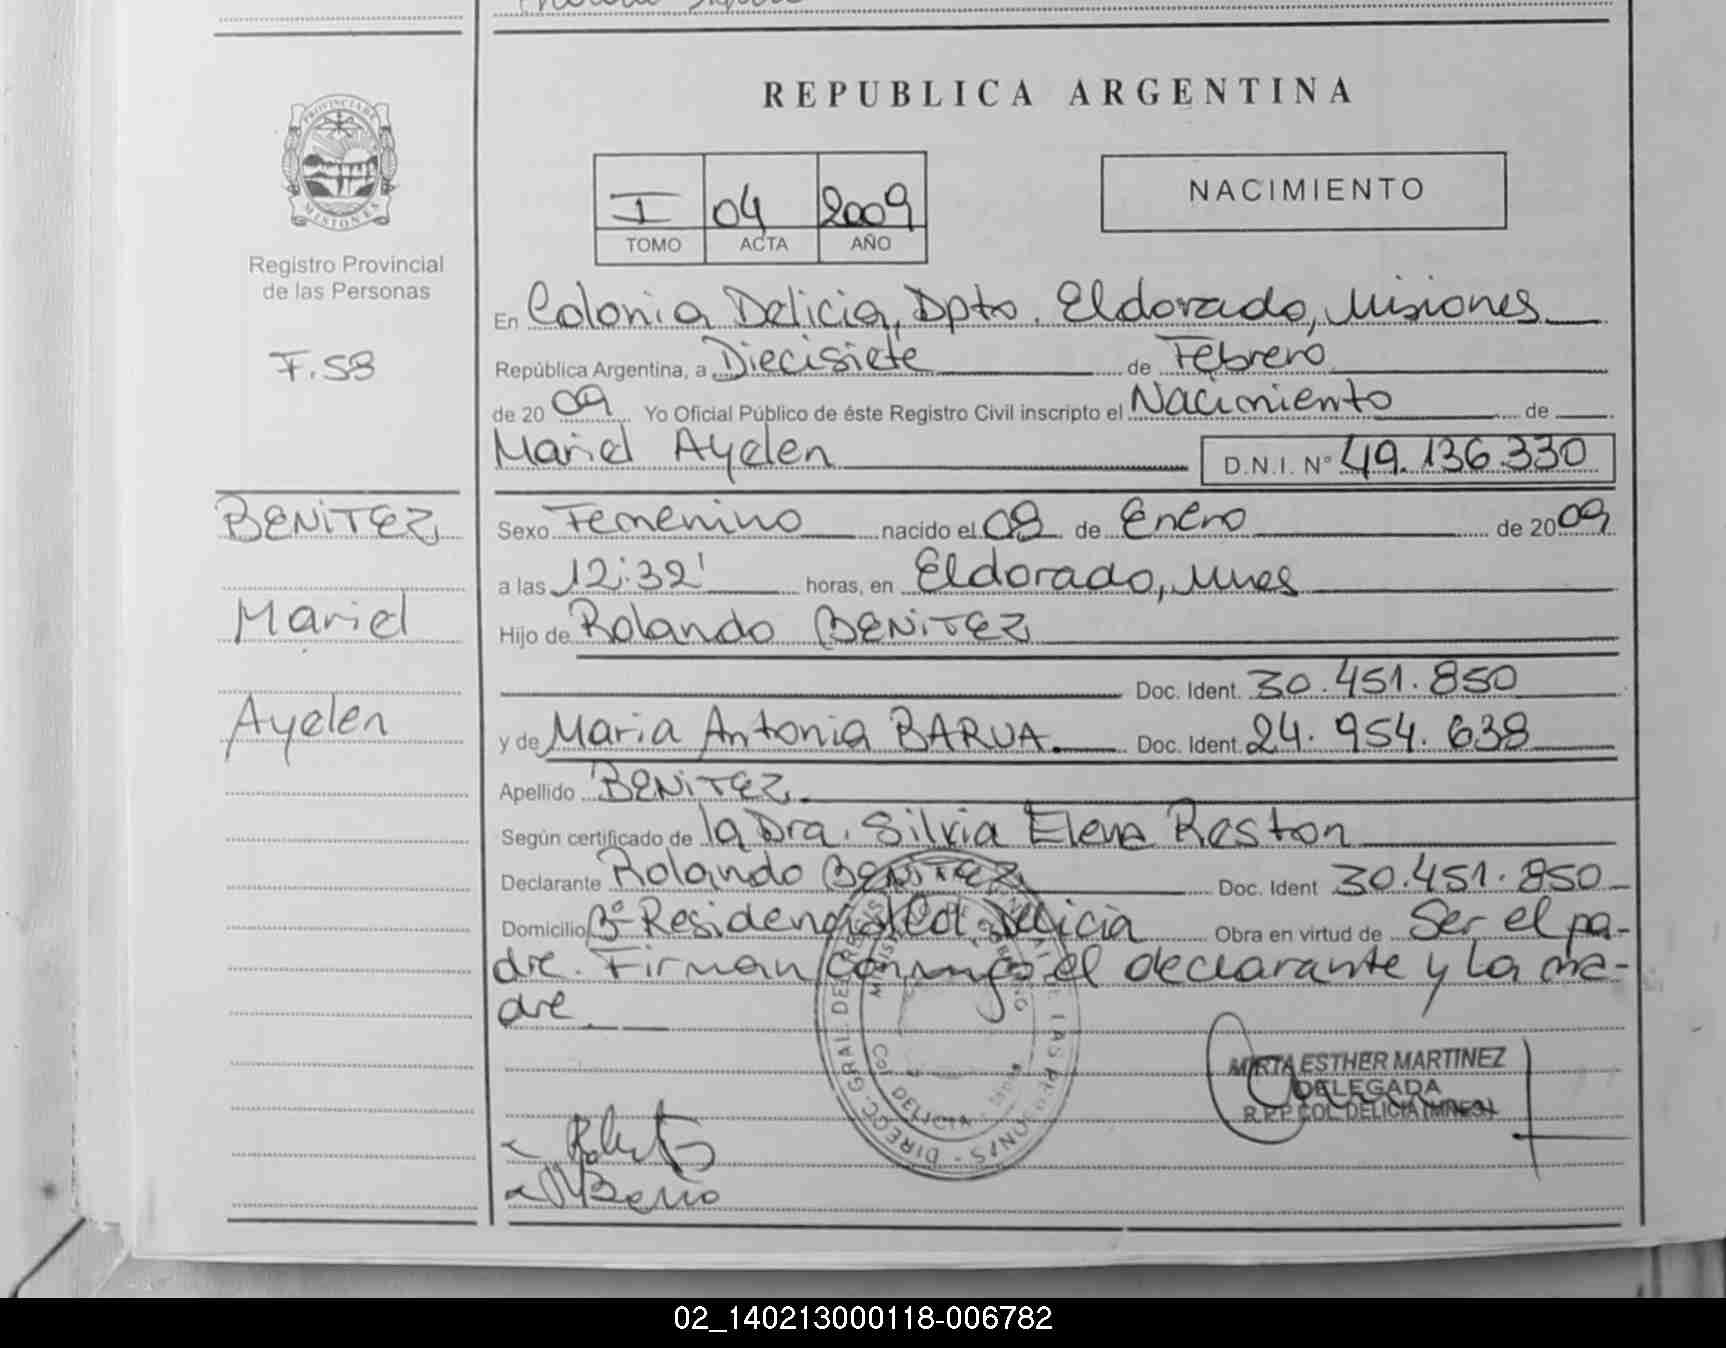 REPUBLICA ARGENTINA
PROVINCIA DE MISIONES
Registro Provincial
de las Personas
F.58
I 04 2009
TOMO ACTA AÑO
NACIMIENTO
En Colonia Delicia, Dpto. Eldorado, Misiones
República Argentina, a Diecisiete de Febrero
de 2009 Yo Oficial Público de éste Registro Civil inscripto el Nacimiento de
Mariel Ayelen D.N.I. Nº 49.136.330
BENITEZ
Mariel
Ayelen
Sexo Femenino nacido el 08 de Enero de 2009
a las 12:32' horas, en Eldorado, Mnes
Hijo de Rolando BENITEZ
Doc. Ident. 30.451.850
y de Maria Antonia BARUA. Doc. Ident. 24.954.638
Apellido BENITEZ.
Según certificado de la Dra. Silvia Elena Reston
Declarante Rolando BENITEZ Doc. Ident 30.451.850
Domicilio Bº Residencial Col. Delicia Obra en virtud de Ser el pa-
dre. Firman conmigo el declarante y la ma-
dre.
MIRTA ESTHER MARTINEZ
DELEGADA
R.P.P. COL. DELICIA (MNES)
02_140213000118-006782